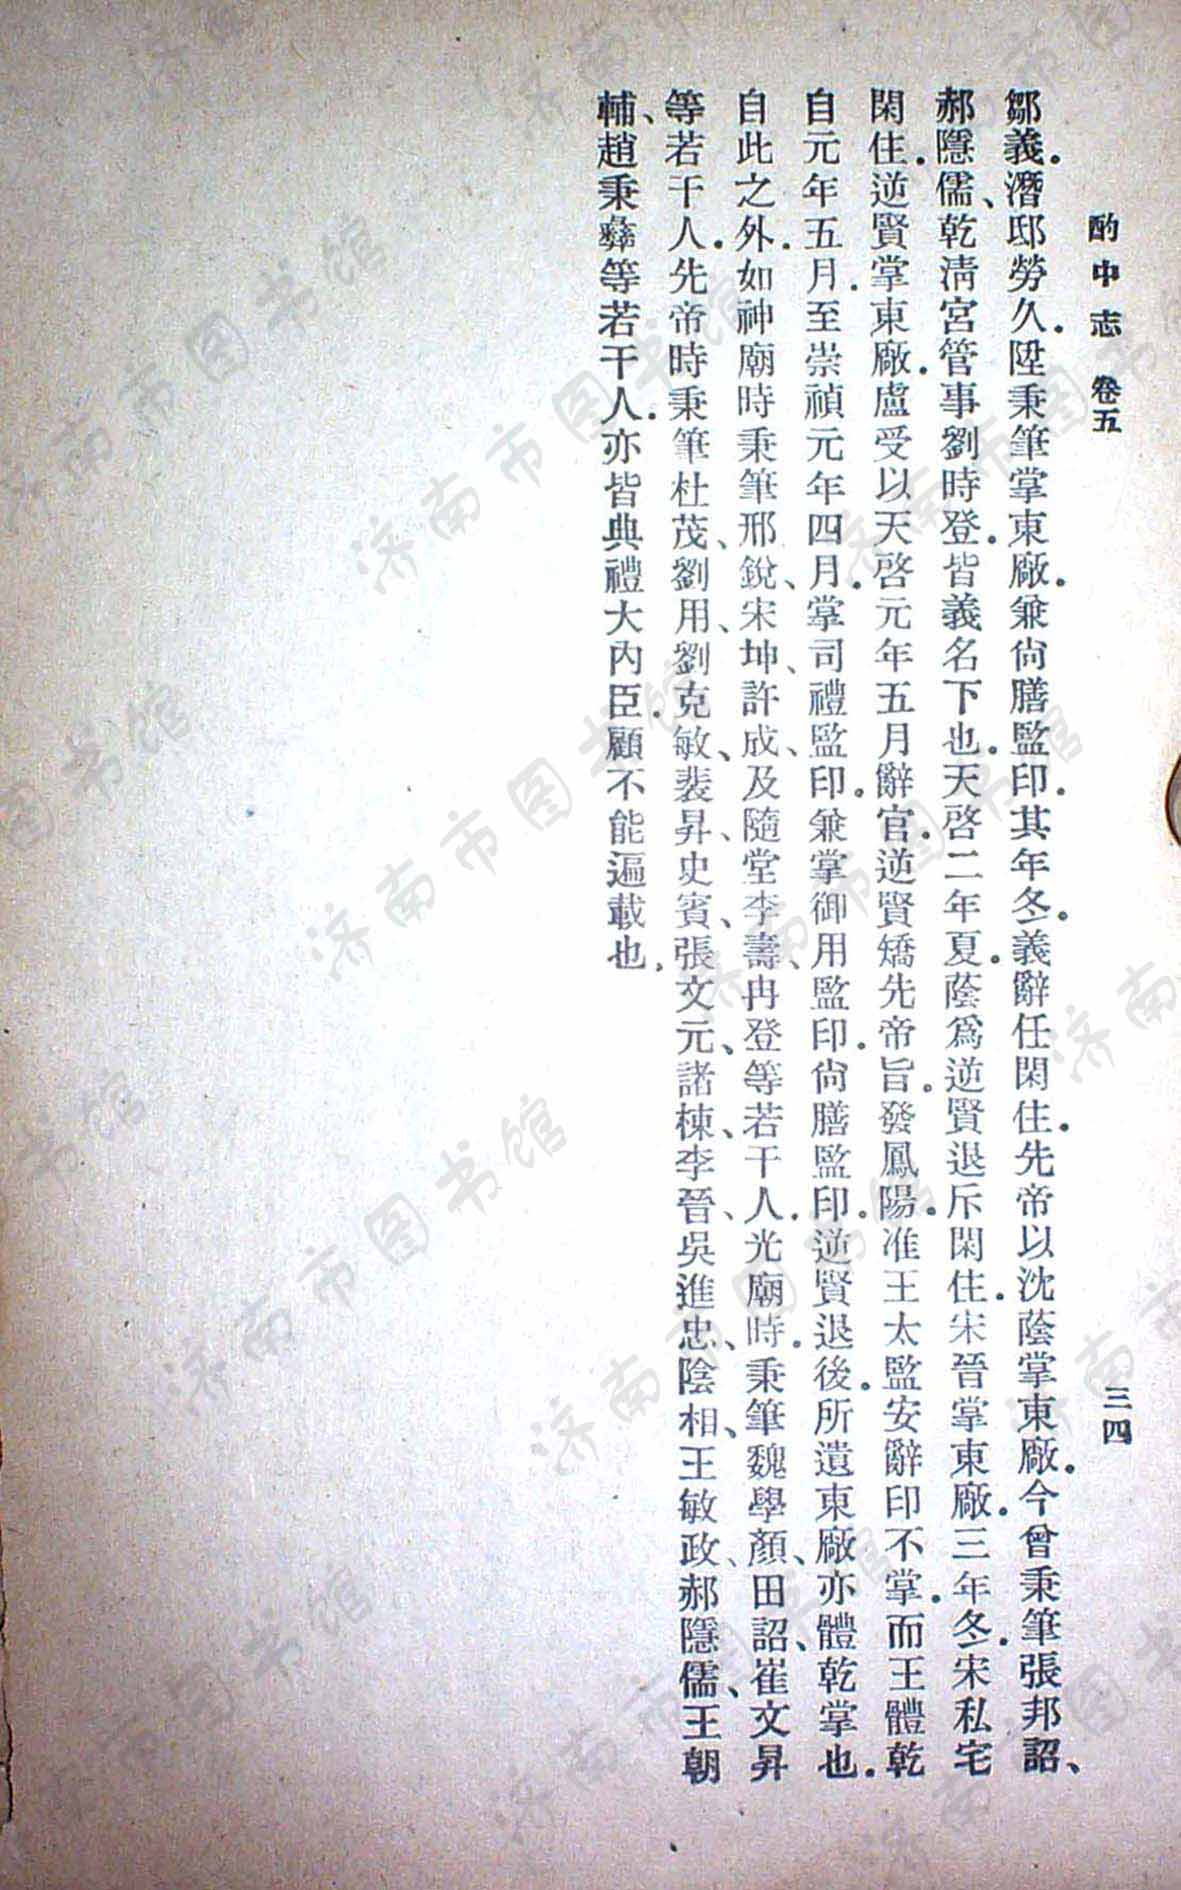 酌中志　卷五
三四
鄒義.潛邸勞久.陞秉筆掌東廠.兼尙膳監印.其年冬.義辭任閑住.先帝以沈蔭掌東廠.今曾秉筆張邦詔、
郝隱儒、乾淸宮管事劉時登.皆義名下也.天啓二年夏.蔭爲逆賢退斥閑住.宋晉掌東廠.三年冬.宋私宅
閑住.逆賢掌東廠.盧受以天啓元年五月辭官.逆賢矯先帝旨.發鳳陽.准王太監安辭印不掌.而王體乾
自元年五月.至崇禎元年四月.掌司禮監印.兼掌御用監印.尙膳監印.逆賢退後.所遺東廠亦體乾掌也.
自此之外.如神廟時秉筆邢銳、宋坤、許成、及隨堂李壽、冉登等若干人.光廟時.秉筆魏學顏、田詔、崔文昇
等若干人.先帝時秉筆杜茂、劉用、劉克敏、裴昇、史賓、張文元、諸棟、李晉、吳進忠、陰相、王敏政、郝隱儒、王朝
輔、趙秉彝等若干人.亦皆典禮大內臣.顧不能遍載也.
济南市图书馆